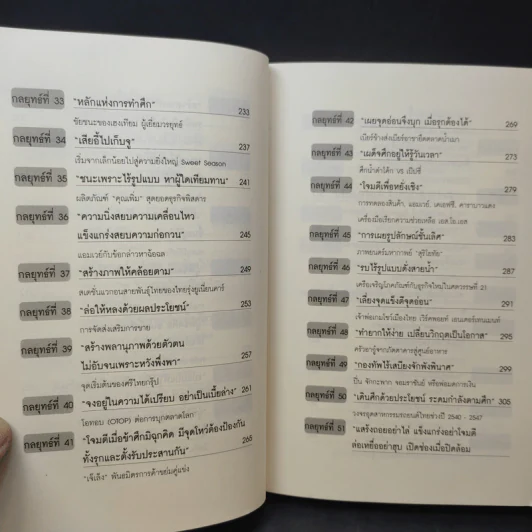 กลยุทธ์ที่ 33 "หลักแห่งการทำศึก" 233
ชัยชนะของเฮงเทียม ผู้เยี่ยมวรยุทธ์
กลยุทธ์ที่ 34 "เสียอี้ไปเก็บจู" 237
เริ่มจากเล็กน้อยไปสู่ความยิ่งใหญ่ Sweet Season
กลยุทธ์ที่ 35 "ชนะเพราะไร้รูปแบบ หาผู้ใดเทียมทาน" 241
ผลิตภัณฑ์ "คุณเพิ่ม" สุดยอดธุรกิจพิสดาร
กลยุทธ์ที่ 36 "ความนิ่งสยบความเคลื่อนไหว
แข็งแกร่งสยบความก่อกวน" 245
แอมเวย์กับข้อกล่าวหาฉ้อฉล
กลยุทธ์ที่ 37 "สร้างภาพให้คล้อยตาม" 249
สเตชั่นแวกอนสายพันธุ์ไทยของไทยรุ่งยูเนี่ยนคาร์
กลยุทธ์ที่ 38 "ล่อให้หลงด้วยผลประโยชน์" 253
การจัดส่งเสริมการขาย
กลยุทธ์ที่ 39 "สร้างพลานุภาพด้วยตัวตน
ไม่อับจนเพราะหวังพึ่งพา" 257
จุดเริ่มต้นของศรีไทยกรุ๊ป
กลยุทธ์ที่ 40 "จงอยู่ในความได้เปรียบ อย่าเป็นเบี้ยล่าง" 261
โอทอบ (OTOP) ต่อการบุกตลาดโลก"
กลยุทธ์ที่ 41 "โจมตีเมื่อข้าศึกมิฉุกคิด มีจุดโหว่ต้องป้องกัน
ทั้งรุกและตั้งรับประสานกัน" 265
"เจ๊เล้ง" พันธมิตรการค้าขย่มคู่แข่ง
กลยุทธ์ที่ 42 "เผยจุดอ่อนจึงบุก เมื่อรุกต้องได้" 269
เบียร์ช้างส่งเบียร์อาชายึดตลาดน้ำเมา
กลยุทธ์ที่ 43 "เผด็จศึกอยู่ให้รู้วันเวลา" 273
ศึกน้ำดำโค้ก vs เป๊ปซี่
กลยุทธ์ที่ 44 "โจมตีเพื่อหยั่งเชิง" 279
การทดลองสินค้า แอมเวย์, เคเอฟซี, คาราบาวแดง
เครื่องมือเรียกความช่วยเหลือ เอส.โอ.เอส
กลยุทธ์ที่ 45 "การเผยรูปลักษณ์ชั้นเลิศ" 283
ภาพยนตร์มหากาพย์ "สุริโยทัย"
กลยุทธ์ที่ 46 "รบไร้รูปแบบดั่งสายน้ำ" 287
เครือเจริญโภคภัณฑ์กับธุรกิจใหม่ในศตวรรษที่ 21
กลยุทธ์ที่ 47 "เลี่ยงจุดแข็งตีจุดอ่อน" 291
เจ้าพ่อเกมโชว์เมืองไทย เวิร์คพอยท์ เอนเตอร์เทนเมนท์
กลยุทธ์ที่ 48 "ทำยากให้ง่าย เปลี่ยนวิกฤตเป็นโอกาส" 295
ครัวอารู่จากภัตตาคารสู่ศูนย์อาหาร
กลยุทธ์ที่ 49 "กองทัพไร้เสบียงจักพังพินาศ" 299
ปิ่น จักกะพาก จอมราชันย์ หรือพ่อมดการเงิน
กลยุทธ์ที่ 50 "เดินศึกด้วยประโยชน์ ระดมกำลังตามศึก" 305
วงจรอุตสาหกรรมรถยนต์ไทยช่วงปี 2540 - 2547
กลยุทธ์ที่ 51 "แสร้งถอยอย่าไล่ แข็งแกร่งอย่าโจมตี
ล่อเหยื่ออย่าฮุบ เปิดช่องเมื่อปิดล้อม